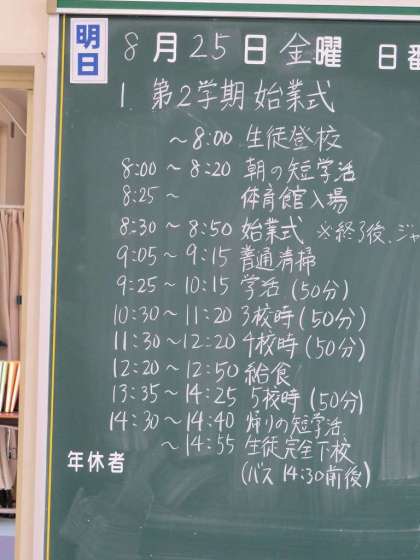 明日 8月25日金曜 日番
1. 第2学期始業式
～8:00 生徒登校
8:00～8:20 朝の短学活
8:25～ 体育館入場
8:30～8:50 始業式 ※終了後、ジャ
9:05～9:15 普通清掃
9:25～10:15 学活(50分)
10:30～11:20 3校時(50分)
11:30～12:20 4校時(50分)
12:20～12:50 給食
13:35～14:25 5校時(50分)
14:30～14:40 帰りの短学活
～14:55 生徒完全下校
(バス 14:30前後)
年休者